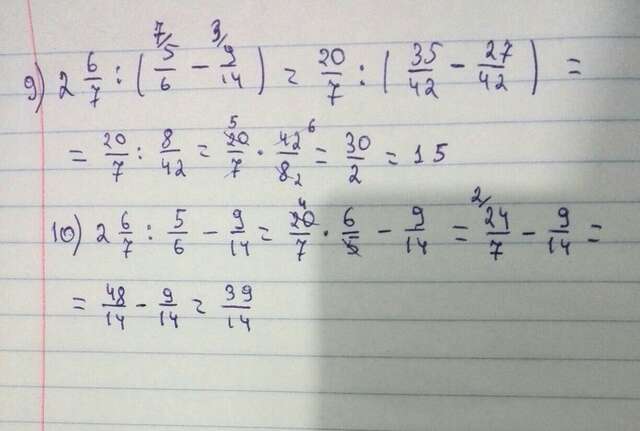 9) 2 6/7 : ( 5/6 - 9/14 ) = 20/7 : ( 35/42 - 27/42 ) =
= 20/7 : 8/42 = 20/7 · 42/8 = 30/2 = 15
10) 2 6/7 : 5/6 - 9/14 = 20/7 · 6/5 - 9/14 = 24/7 - 9/14 =
= 48/14 - 9/14 = 39/14